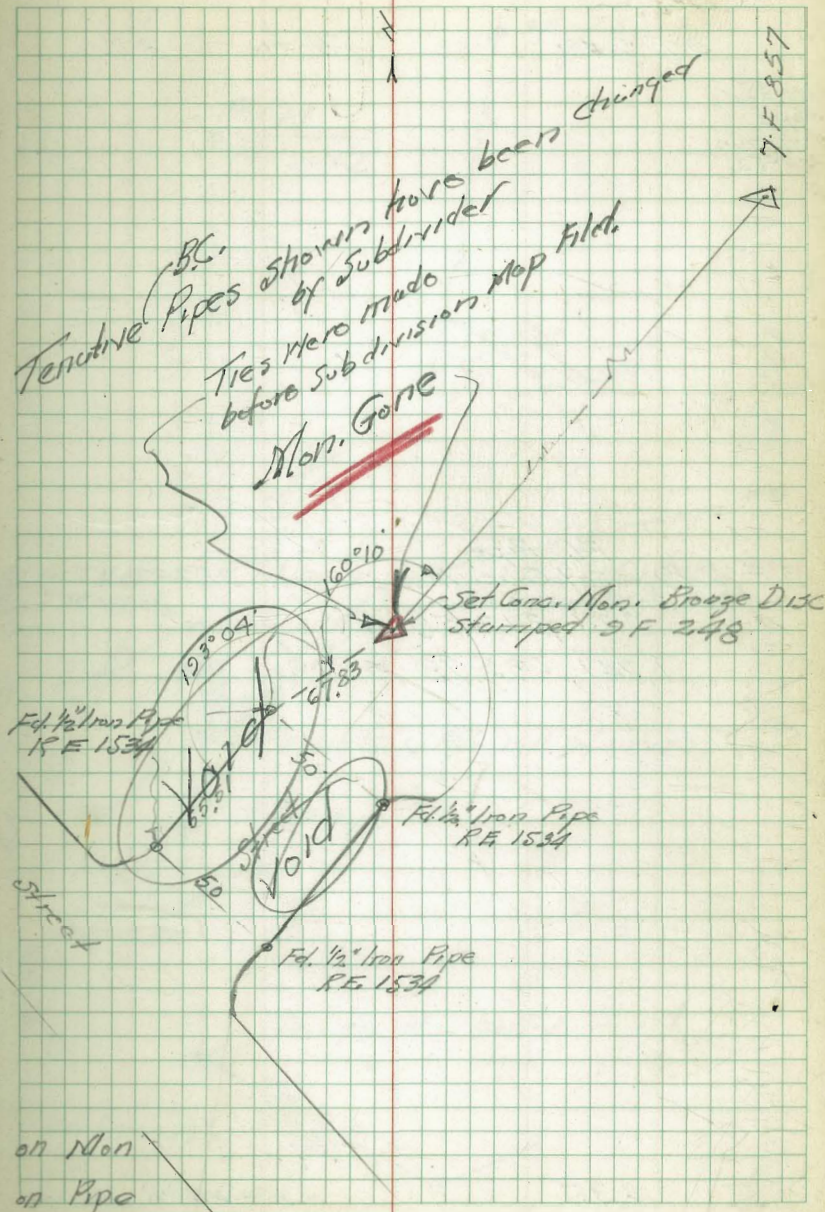 N
7-F 857
B.C.
Tenative Pipes Shown have been changed
by Subdivider
Ties were made
before Subdivision Map Filed.
Mon. Gone
160°10'
A
Set Conc. Mon. Bronze Disc
Stamped 9 F 248
193°04'
67.83
Fd. 1/2" Iron Pipe
R E 1534
Void
65.51
50'
Street
Void
Fd. 1/2" Iron Pipe
R.E. 1534
50
Street
Fd. 1/2" Iron Pipe
R.E. 1534
on Mon
on Pipe